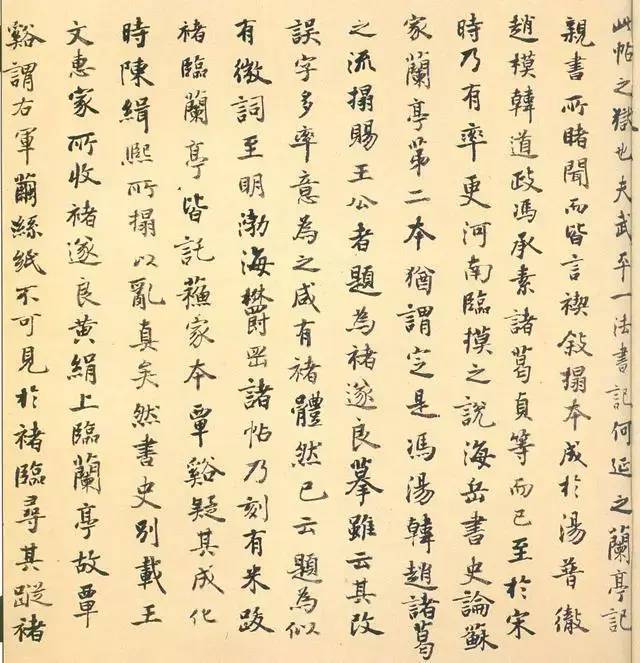 此帖之獄也夫武平一法書記何延之蘭亭記
親書所睹聞而皆言禊敘搨本成於湯普徹
趙模韓道政馮承素諸葛貞等而已至於宋
時乃有率更河南臨摸之說海岳書史論蘇
家蘭亭第二本猶謂定是馮湯韓趙諸葛
之流搨賜王公者題為褚遂良摹雖云其改
誤字多率意為之咸有褚體然已云題為似
有微詞至明渤海欝岡諸帖乃刻有米跋
褚臨蘭亭皆託蘓家本覃谿疑其成化
時陳緝熙所搨以亂真矣然書史別載王
文惠家所收褚遂良黃絹上臨蘭亭故覃
谿謂右軍繭絲紙不可見於褚臨尋其蹤褚